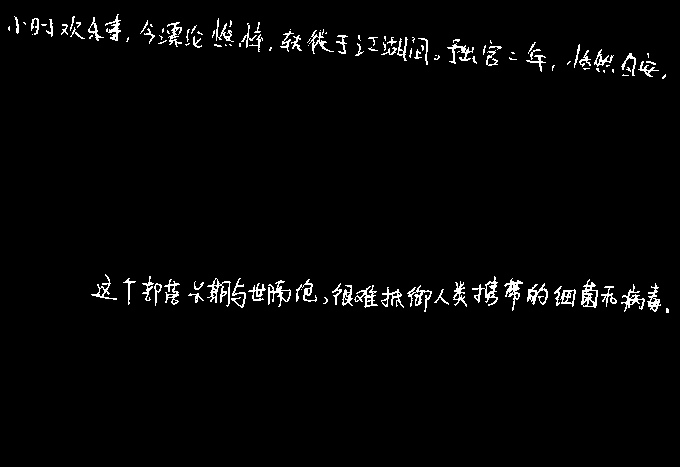 小时欢乐事,今漂沦憔悴,转徙于江湖间。予出官二年,恬然自安,
这个部落长期与世隔绝,很难抵御人类携带的细菌和病毒。